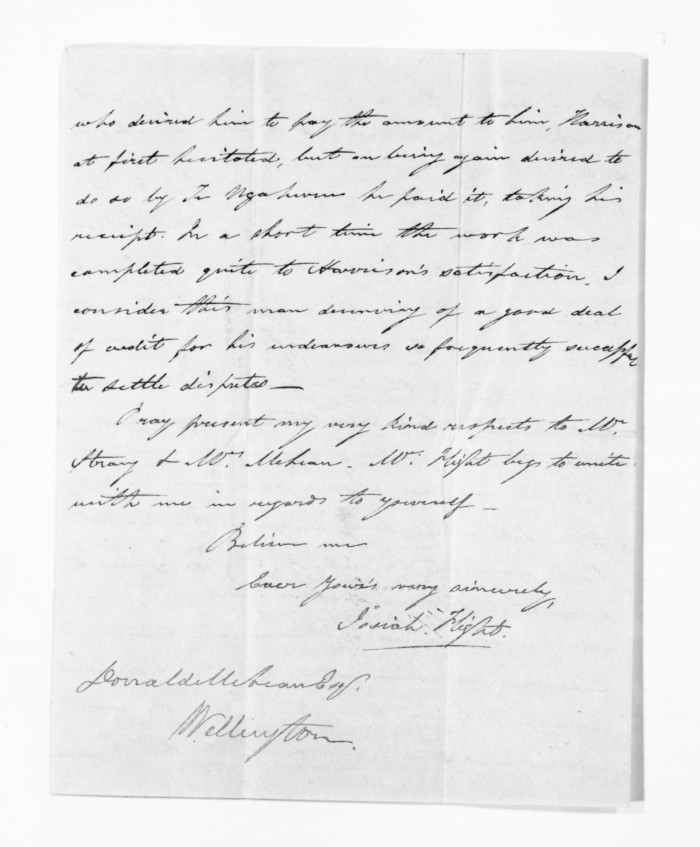 who desired him to pay the amount to him, Harrison
at first hesitated, but on being again desired to
do so by Te Ngahuru he paid it, taking his
receipt. In a short time the work was
completed quite to Harrison's satisfaction. I
consider this man deserving of a good deal
of credit for his endeavours so frequently successful
to settle disputes —
Pray present my very kind respects to Mr.
& Mrs. McLean. Mrs. Flight begs to unite
with me in regards to yourself —
Believe me
Ever Your's very sincerely,
Josiah Flight.
Donald McLean Esqr.
Wellington.